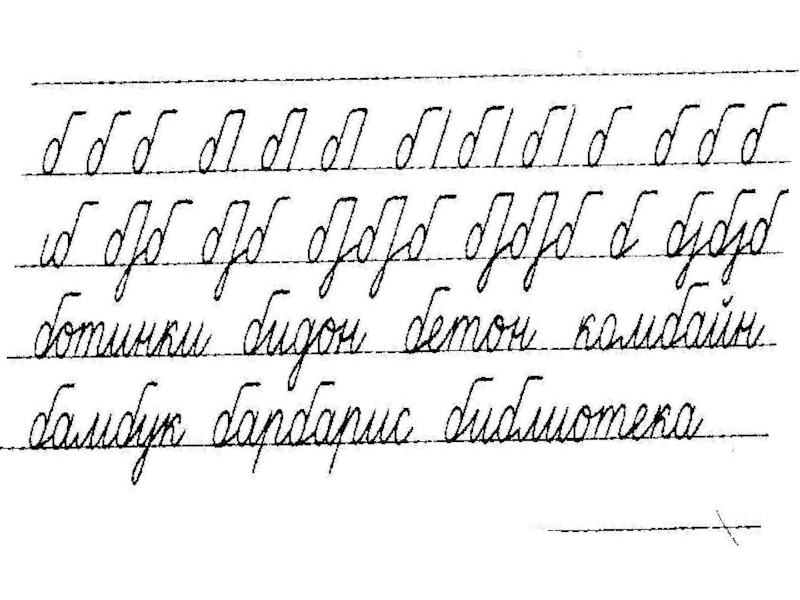 б б б б б б б б б б б б б
б б б б б б б б б б б б б
ботинки бидон бетон комбайн
бамбук барбарис библиотека